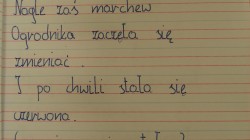 Nagle zaś marchew
Ogrodnika zaczęła się
zmieniać.
I po chwili stała się
czerwona.